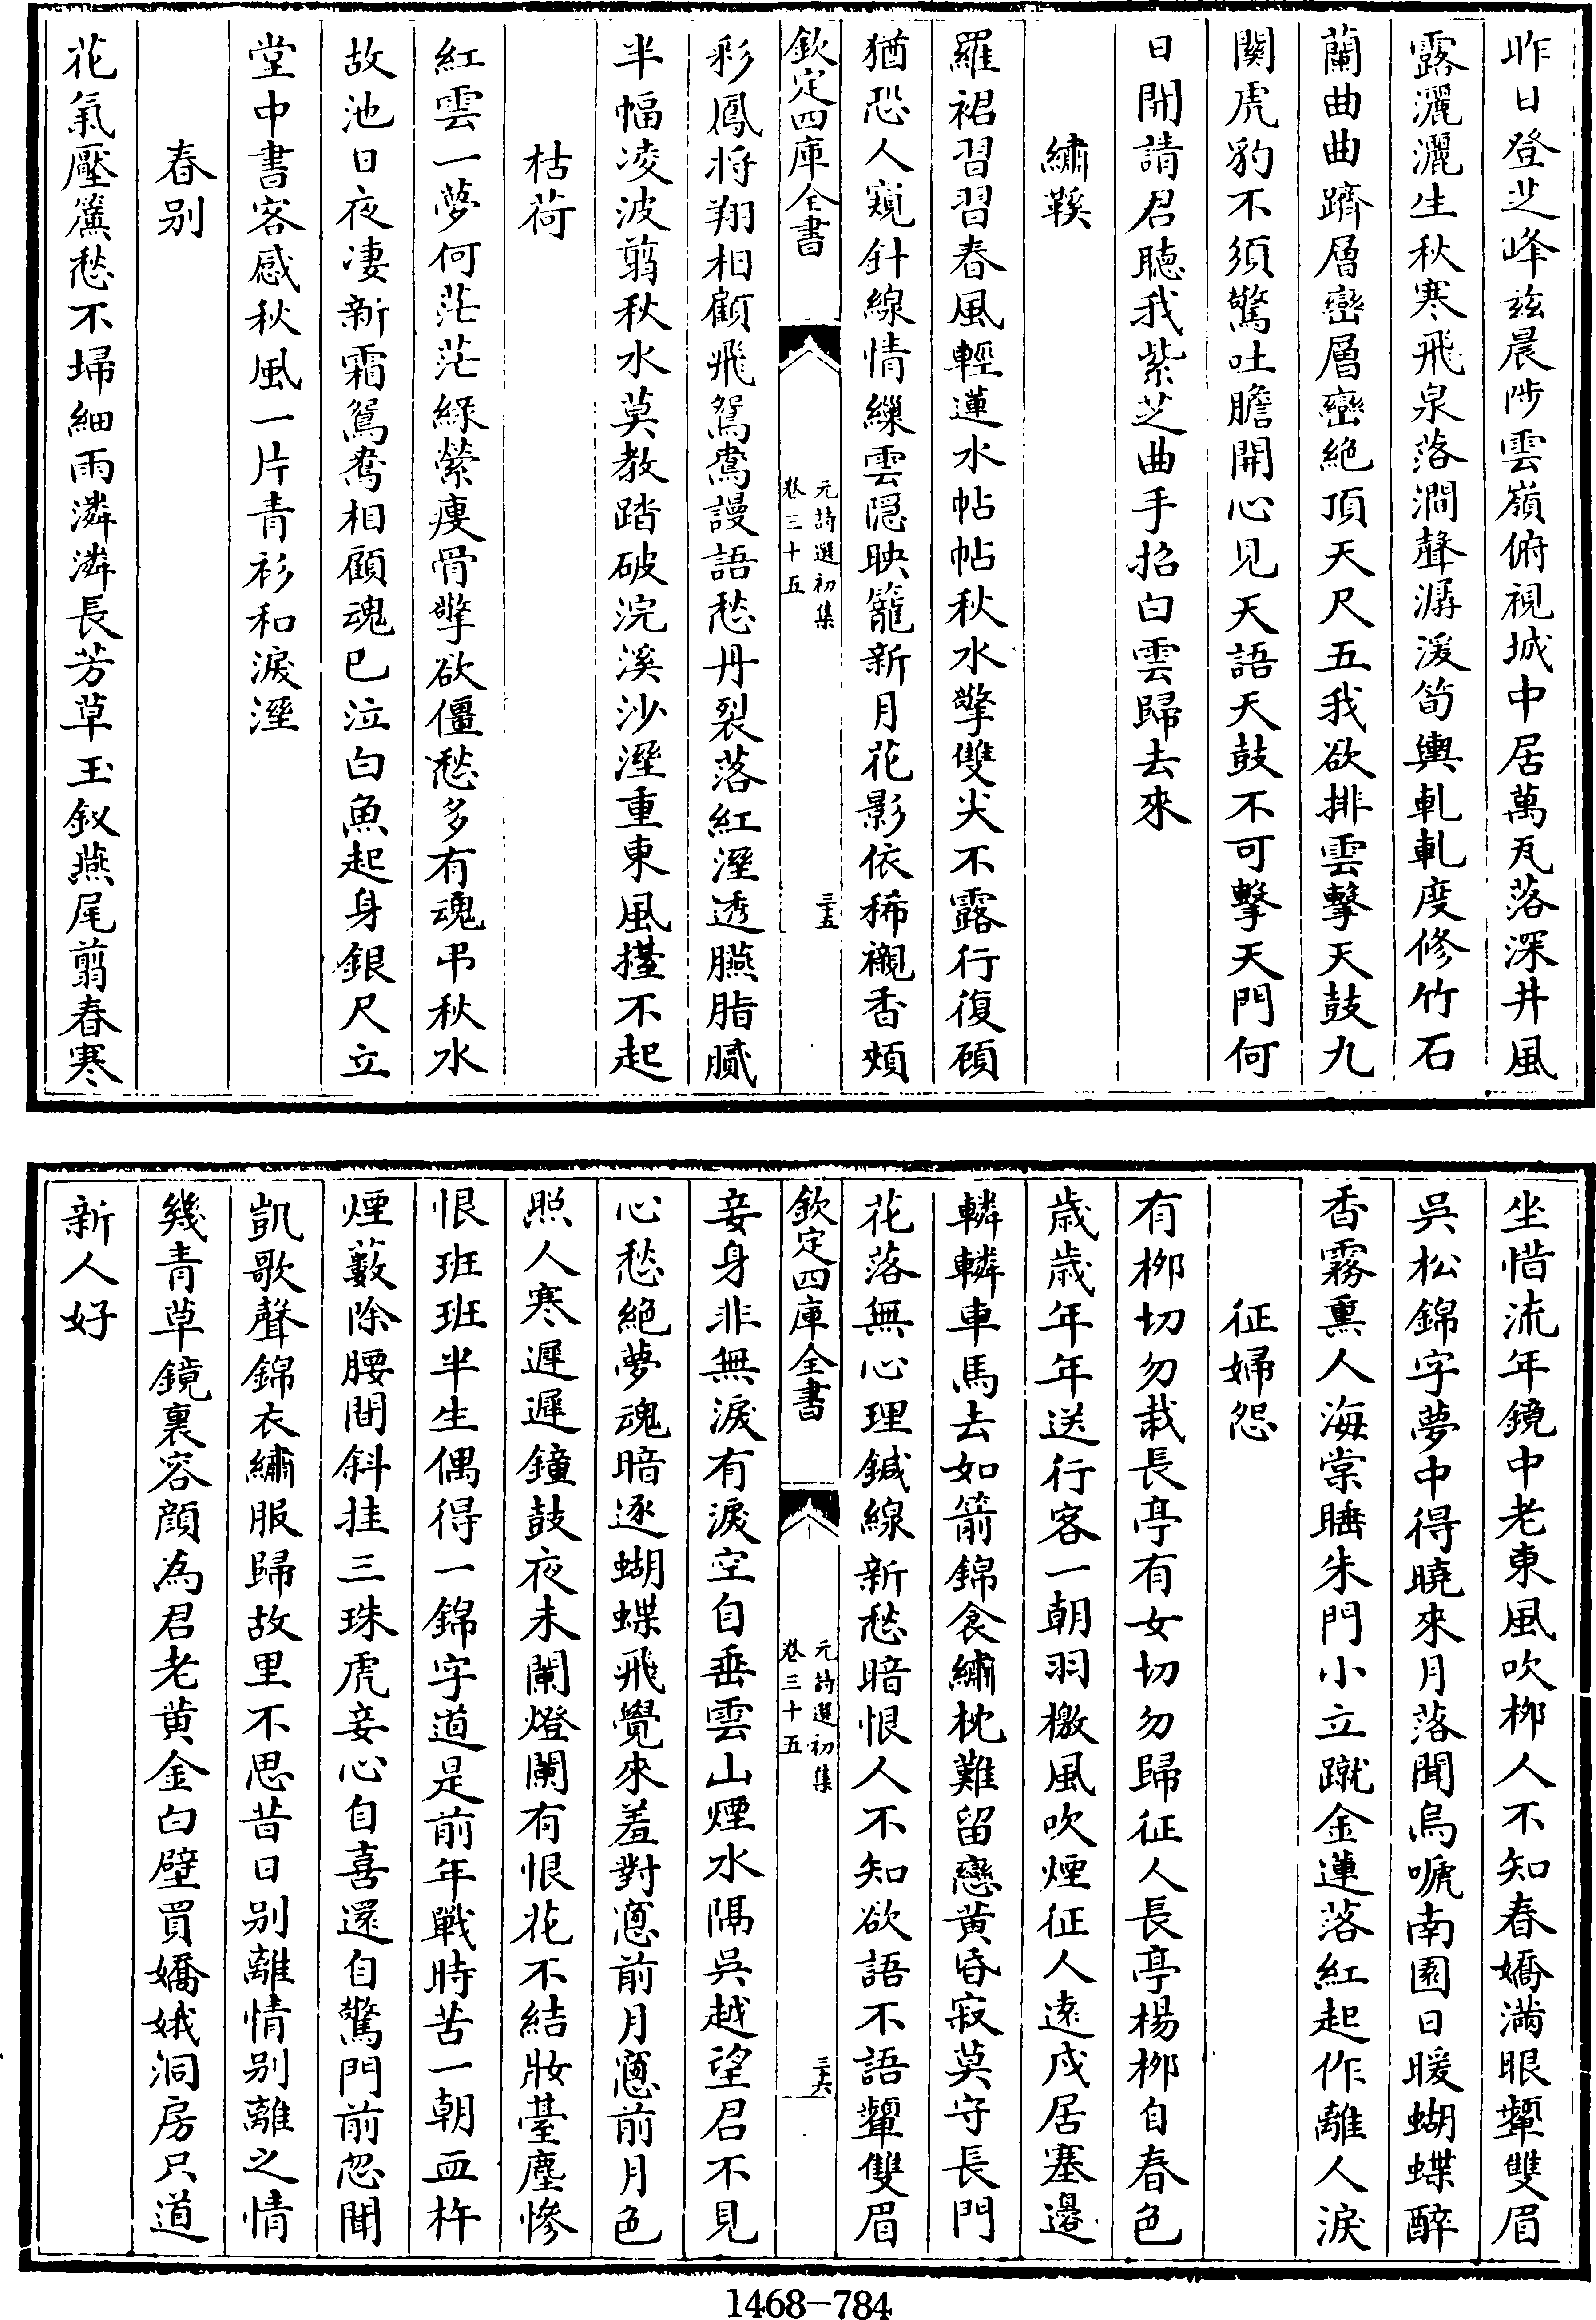 昨日登芝峰兹晨陟雲嶺俯視城中居萬瓦落深井風
露灑灑生秋寒飛泉落澗聲潺湲筍輿軋軋度修竹石
蘭曲曲躋層巒層巒絶頂天尺五我欲排雲擊天鼓九
關虎豹不須驚吐膽開心见天語天鼓不可擊天門何
日開請君聴我紫芝曲手招白雲歸去來
繡鞵
羅裙習習春風輕蓮水帖帖秋水擎雙尖不露行復顧
猶恐人窺針線情纙雲隠映籠新月花影依稀襯香頰
欽定四庫全書
元詩選初集
卷三十五
三十五
彩鳳将翔相顧飛鴛鴦謾語愁丹裂落紅溼透臙脂膩
半幅凌波翦秋水莫教踏破浣溪沙溼重東風擡不起
枯荷
紅雲一夢何茫茫緑縈痩骨擎欲僵愁多有魂弔秋水
故池日夜凄新霜鴛鴦相顧魂已泣白魚起身銀尺立
堂中書客感秋風一片青衫和淚溼
春别
花氣壓簾愁不埽細雨潾潾長芳草玉釵燕尾翦春寒
坐惜流年鏡中老東風吹栁人不知春嬌滿眼顰雙眉
吳松錦字夢中得曉來月落聞烏嗁南園日暖蝴蝶醉
香霧熏人海棠睡朱門小立蹴金蓮落紅起作離人淚
征婦怨
有栁切勿栽長亭有女切勿歸征人長亭楊栁自春色
歳歳年年送行客一朝羽檄風吹煙征人逺戍居塞邉
轔轔車馬去如箭錦衾繡枕難留戀黄昏寂莫守長門
花落無心理鍼線新愁暗恨人不知欲語不語顰雙眉
欽定四庫全書
元詩選初集
卷三十五
三十六
妾身非無淚有淚空自垂雲山煙水隔吳越望君不見
心愁絶夢魂暗逐蝴蝶飛覺來羞對窻前月窻前月色
照人寒遲遲鐘鼓夜未闌燈闌有恨花不結妝臺塵慘
恨班班半生偶得一錦字道是前年戰時苦一朝血杵
煙藪除腰間斜挂三珠虎妾心自喜還自驚門前忽聞
凱歌聲錦衣繡服歸故里不思昔日别離情别離之情
幾青草鏡裏容顔為君老黄金白璧買嬌娥洞房只道
新人好
1468-784